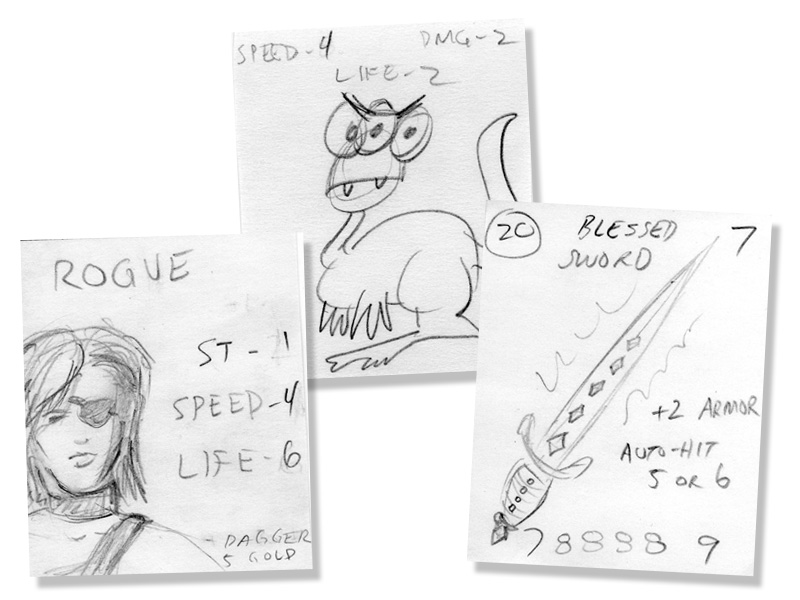 SPEED-4 DMG-2
LIFE-2
ROGUE
ST-1
SPEED-4
LIFE-6
DAGGER
5 GOLD
20 BLESSED 7
SWORD
+2 ARMOR
AUTO-HIT
5 OR 6
7 8 8 8 8 9